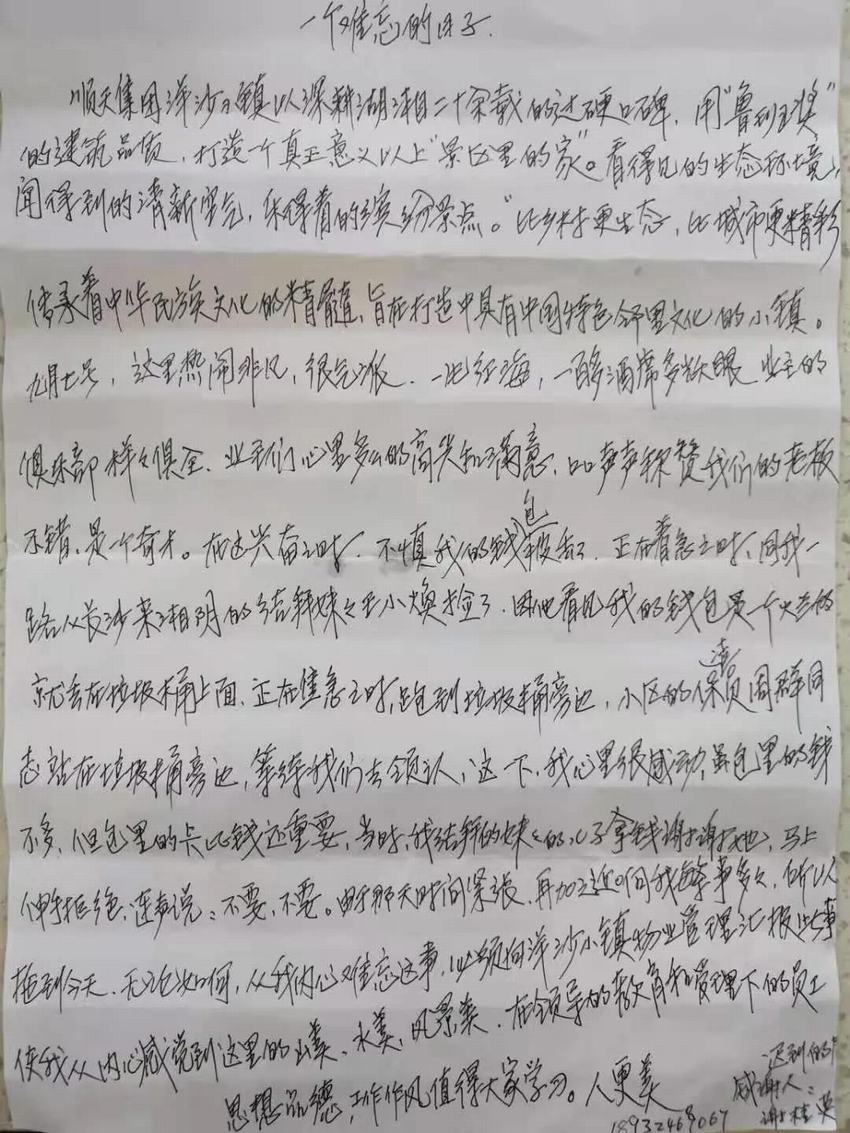 一个难忘的日子.
顺天集团洋沙小镇以深耕湖湘二十余载的过硬口碑,用"鲁班奖"
的建筑品质,打造一个真正意义以上"景区里的家"。看得见的生态环境,
闻得到的清新空气,乐得看的缤纷景点。"比乡村更生态,比城市更精彩
传承着中华民族文化的精髓,旨在打造中具有中国特色邻里文化的小镇。
九月七号,这里热闹非凡,很气派.一比红海,一百多酒席多人眼 业主的
俱乐部样样俱全.业主们心里多么的高兴和满意,口口声声称赞我们的老板
不错,是一个奇才。在这兴奋之时.不慎我的钱包被丢了.正在着急之时,同我一
路从长沙来湘阴的结拜妹妹王小焕捡了.因他看见我的钱包是一个火车的
就丢在垃圾桶上面.正在焦急之时,跑到垃圾桶旁边,小区的保洁员周群同
志站在垃圾桶旁边,等待我们去领认,这一下,我心里很感动,虽包里的钱
不多,但包里的卡比钱还重要,当时,我结拜的妹妹的儿子拿钱谢谢她,马上
伸手拒绝,连声说:不要,不要。由于那天时间紧张.再加之近时间我事多,所以
拖到今天.无论如何,从我内心难忘这事,必须向洋沙小镇物业管理汇报此事
使我从内心感觉到这里的山美、水美,风景美.在领导的教育和管理下的员工
思想品德,工作作风值得大家学习。人更美
迟到的
感谢人:
谢桂英
18932469067